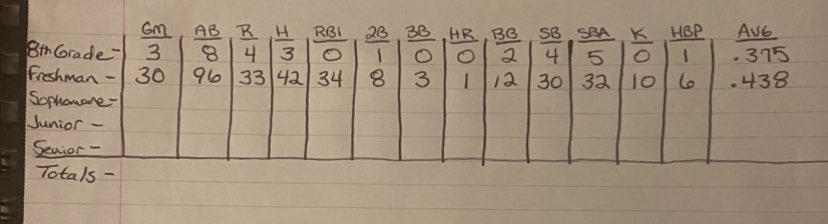 GM AB R H RBI 2B 3B HR BB SB SBA K HBP AVG
8th Grade - 3 8 4 3 0 1 0 0 2 4 5 0 1 .375
Freshman - 30 96 33 42 34 8 3 1 12 30 32 10 6 .438
Sophomore -
Junior -
Senior -
Totals -